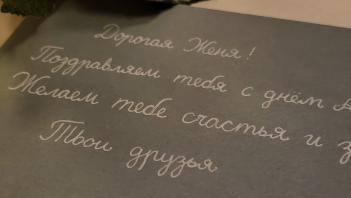 Дорогая Женя!
Поздравляем тебя с днём
Желаем тебе счастья и
Твои друзья